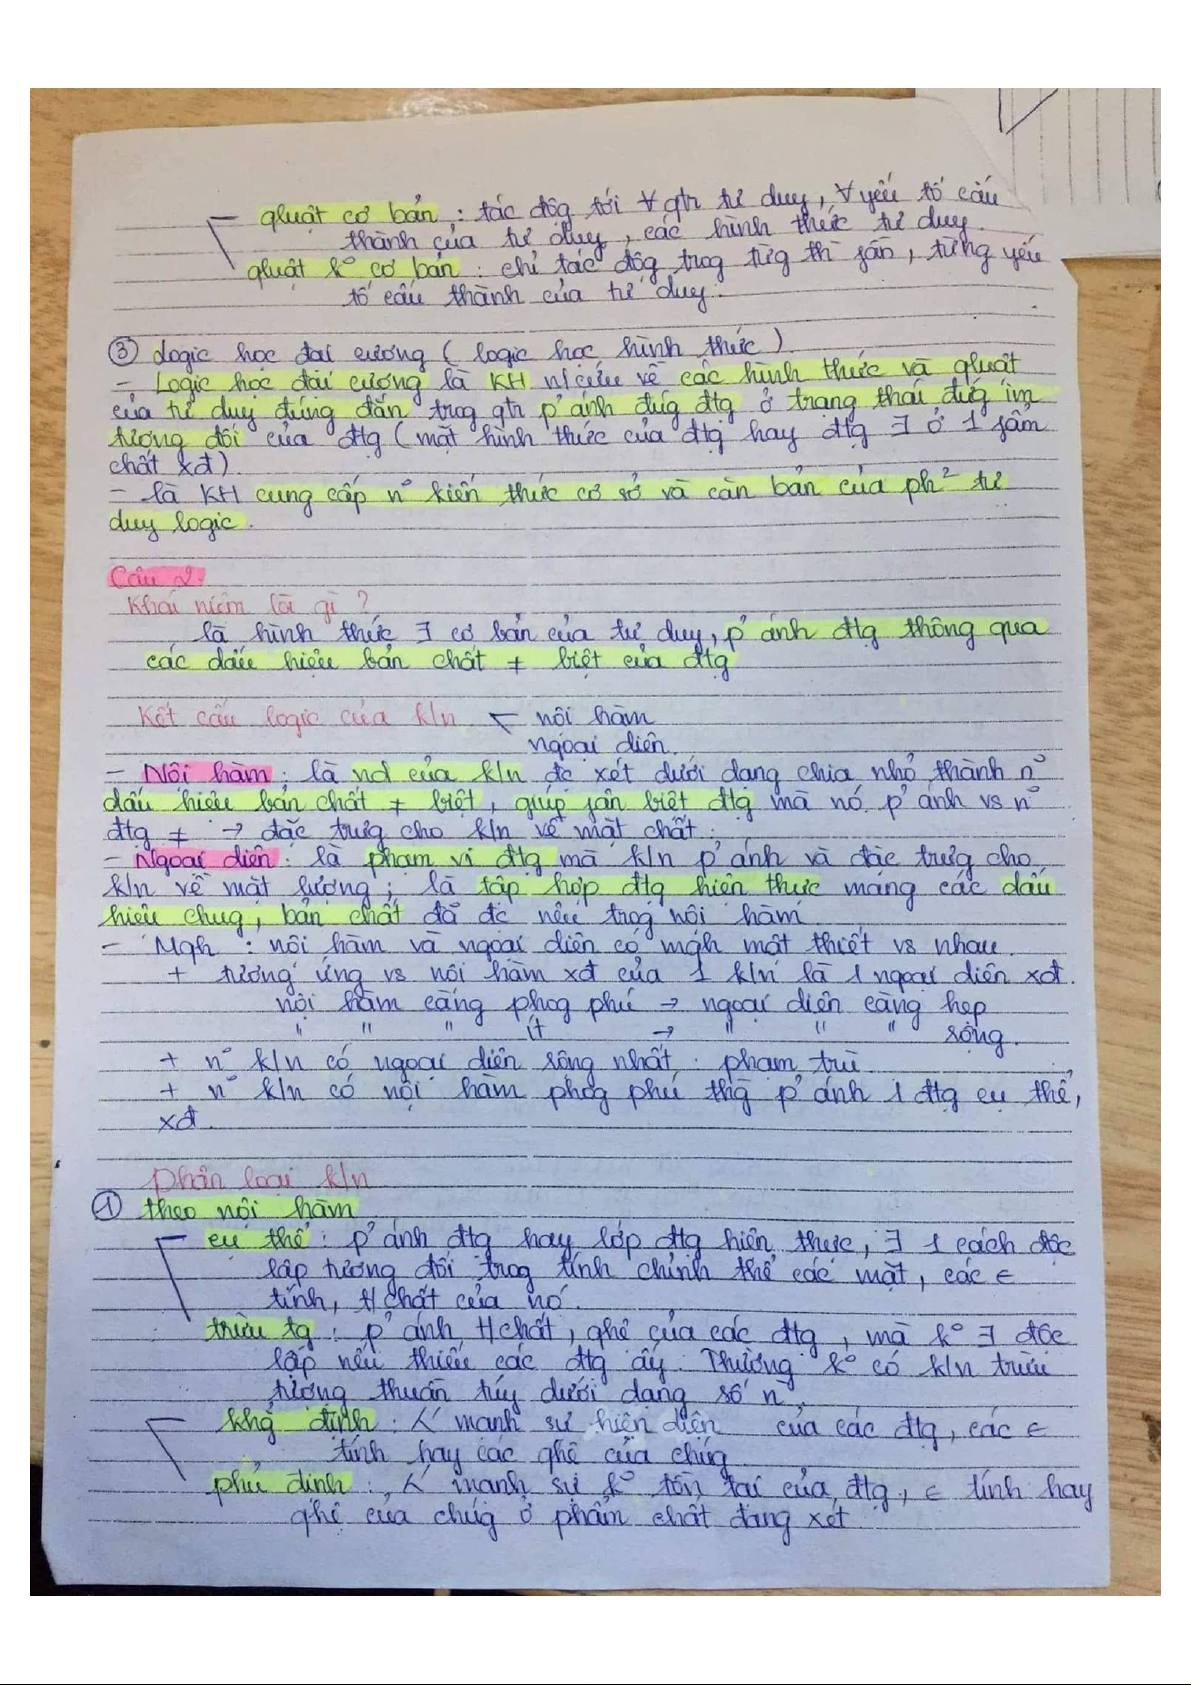 qluật cơ bản : tác độg tới ∀ qtr tư duy, ∀ yếu tố cấu
thành của tư duy, các hình thức tư duy.
qluật k° cơ bản : chỉ tác độg trog từg th fần, từng yếu
tố cấu thành của tư duy.
③ Logic học đại cương ( logic học hình thức )
- Logic học đại cương là KH n/cứu về các hình thức và qluật
của tư duy đúng đắn trog qtr p' ánh đúg đtg ở trạng thái đứg im
tương đối của đtg ( mặt hình thức của đtg hay đtg ∃ ở 1 fẩm
chất xđ ).
- là KH cung cấp n° kiến thức cơ sở và căn bản của ph² tư
duy logic.
Câu 2.
Khái niệm là gì ?
là hình thức ∃ cơ bản của tư duy, p' ánh đtg thông qua
các dấu hiệu bản chất ≠ biệt của đtg
Kết cấu logic của k/n
nội hàm
ngoại diên.
- Nội hàm : là nd của k/n đc xét dưới dạng chia nhỏ thành n°
dấu hiệu bản chất ≠ biệt, giúp fân biệt đtg mà nó p' ánh vs n°
đtg ≠ → đặc trưg cho k/n về mặt chất.
- Ngoại diên : là phạm vi đtg mà k/n p' ánh và đặc trưg cho
k/n về mặt lượng ; là tập hợp đtg hiện thực mang các dấu
hiệu chug, bản chất đã đc nêu trog nội hàm
- Mqh : nội hàm và ngoại diên có mqh mật thiết vs nhau.
+ tương ứng vs nội hàm xđ của 1 k/n là 1 ngoại diên xđ.
nội hàm càng phog phú → ngoại diên càng hẹp
" " " ít → " " " rộng.
+ n° k/n có ngoại diên rộng nhất : phạm trù
+ n° k/n có nội hàm phog phú thg p' ánh 1 đtg cụ thể,
xđ.
Phân loại k/n
① theo nội hàm
cụ thể : p' ánh đtg hay lớp đtg hiện thực, ∃ 1 cách độc
lập tương đối trog tính chỉnh thể các mặt, các ∈
tính, t/chất của nó.
trừu tg : p' ánh t/chất, qhệ của các đtg, mà k° ∃ độc
lập nếu thiếu các đtg ấy. Thường k° có k/n trừu
tượng thuần túy dưới dạng số n°
khg định : mạnh sự hiện diện của các đtg, các ∈
tính hay các qhệ của chúg
phủ định : mạnh sự k° tồn tại của đtg, ∈ tính hay
qhệ của chúg ở phẩm chất đang xét